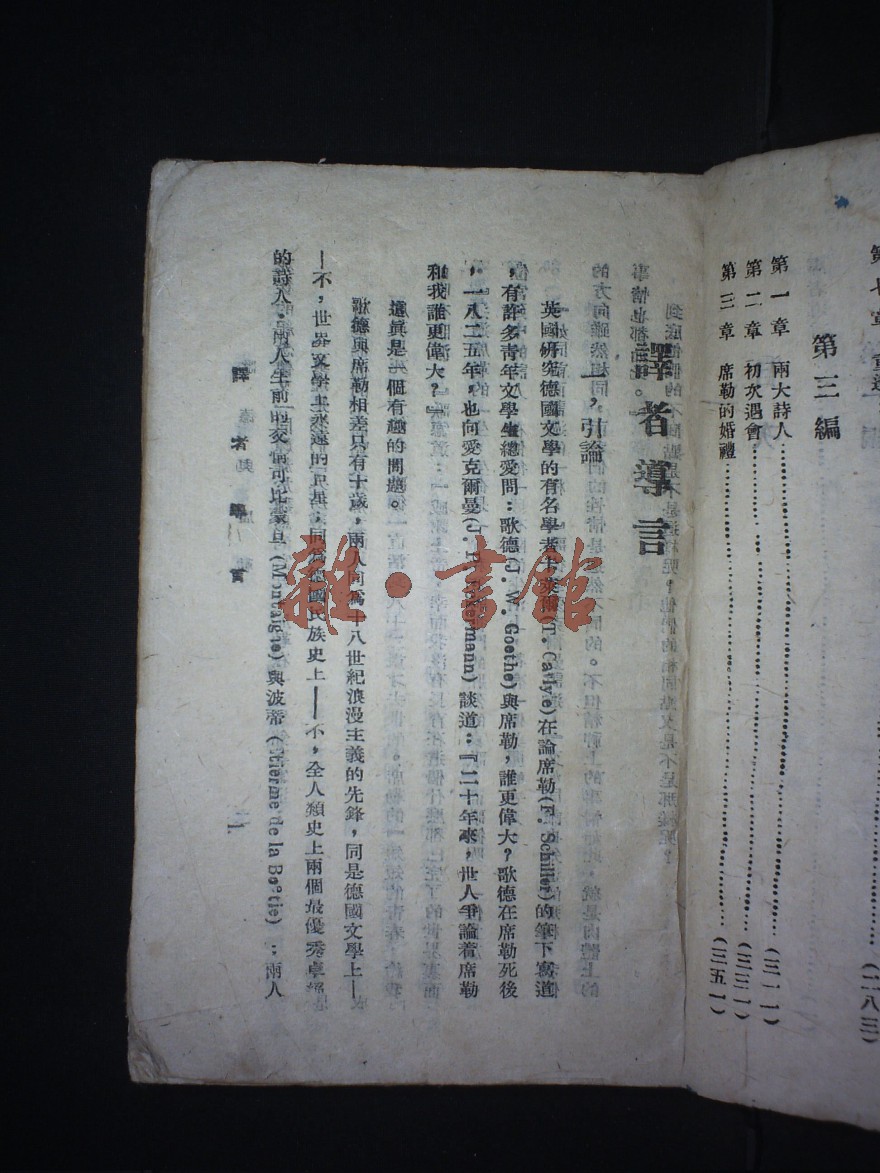 第三編
第一章　兩大詩人……(三一一)
第二章　初次遇會……(三三一)
第三章　席勒的婚禮……(三五一)
譯者導言
一，引論
英國研究德國文學的有名學者卡萊爾(T. Carlyle)在論席勒(F. Schiller)的筆下寫道
，有許多青年文學生總愛問：歌德(J. W. Goethe)與席勒，誰更偉大？歌德在席勒死後
：一八二五年，也向愛克爾曼(J. P. Eckermann)談道：『二十年來，世人爭論着席勒
和我誰更偉大？』
這真是一個有趣的問題。
歌德與席勒相差只有十歲，兩人同為十八世紀浪漫主義的先鋒，同是德國文學上—
—不，世界文學上永遠的巨星；同為德國民族史上——不，全人類史上兩個最優秀卓絕
的詩人。兩人生前的交情可比蒙旦(Montaigne)與波蒂(Etienne de la Boetie)：兩人
譯者導言
一
雜·書館